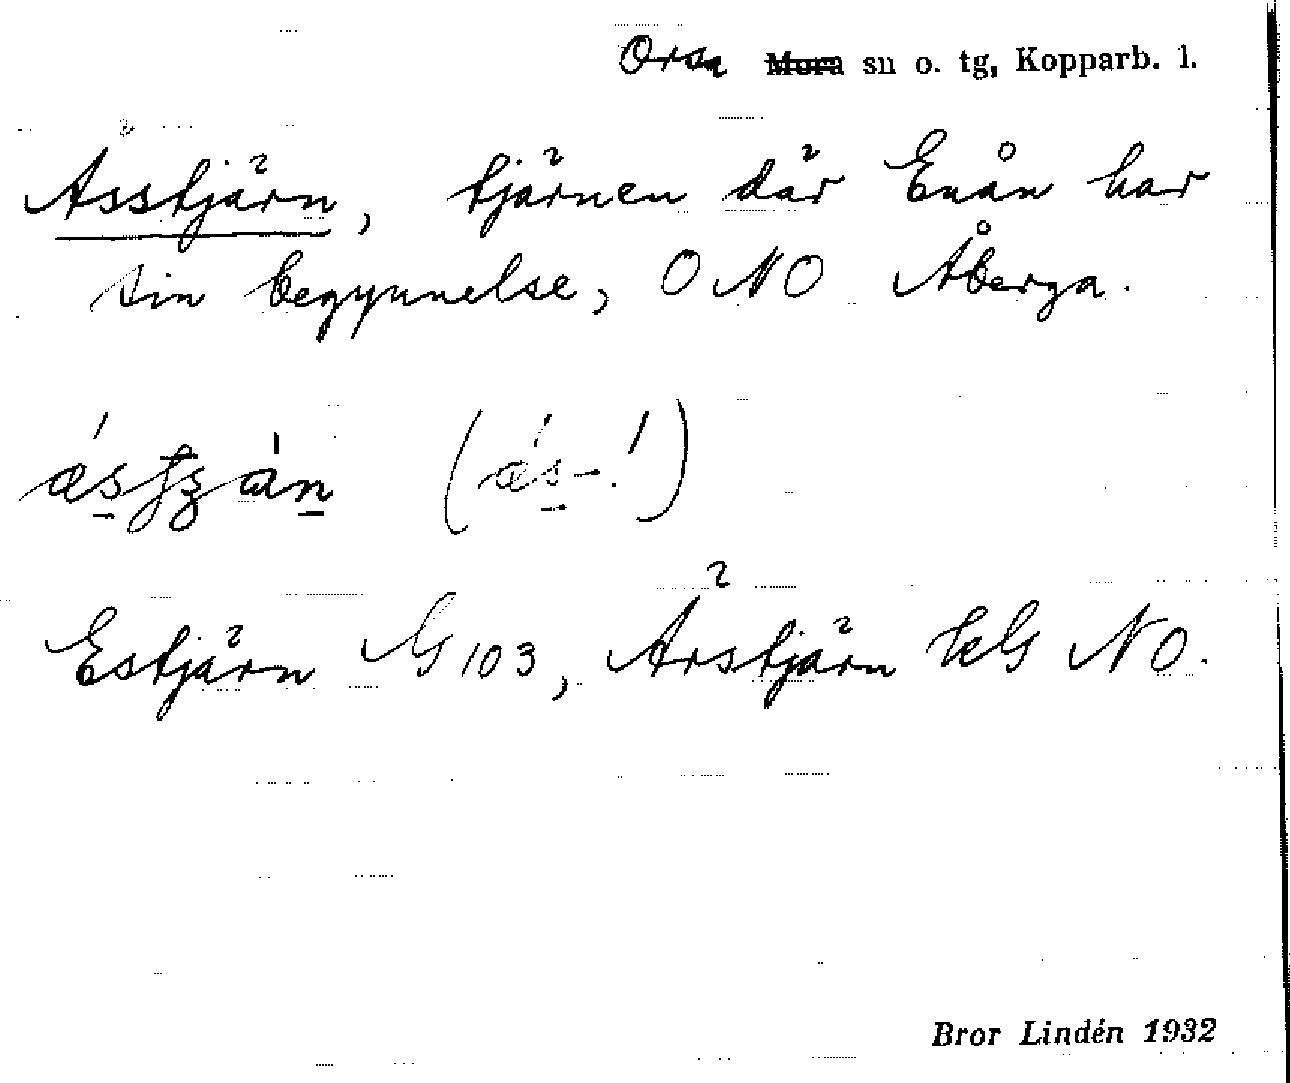 Orsa Mora sn o. tg, Kopparb. l.
Ässtjärn, tjärnen där Enån har
sin begynnelse, ONO Åberga.
(æ̀s-!)
Estjärn G 103, Ärstjärn NO.
Bror Lindén 1932